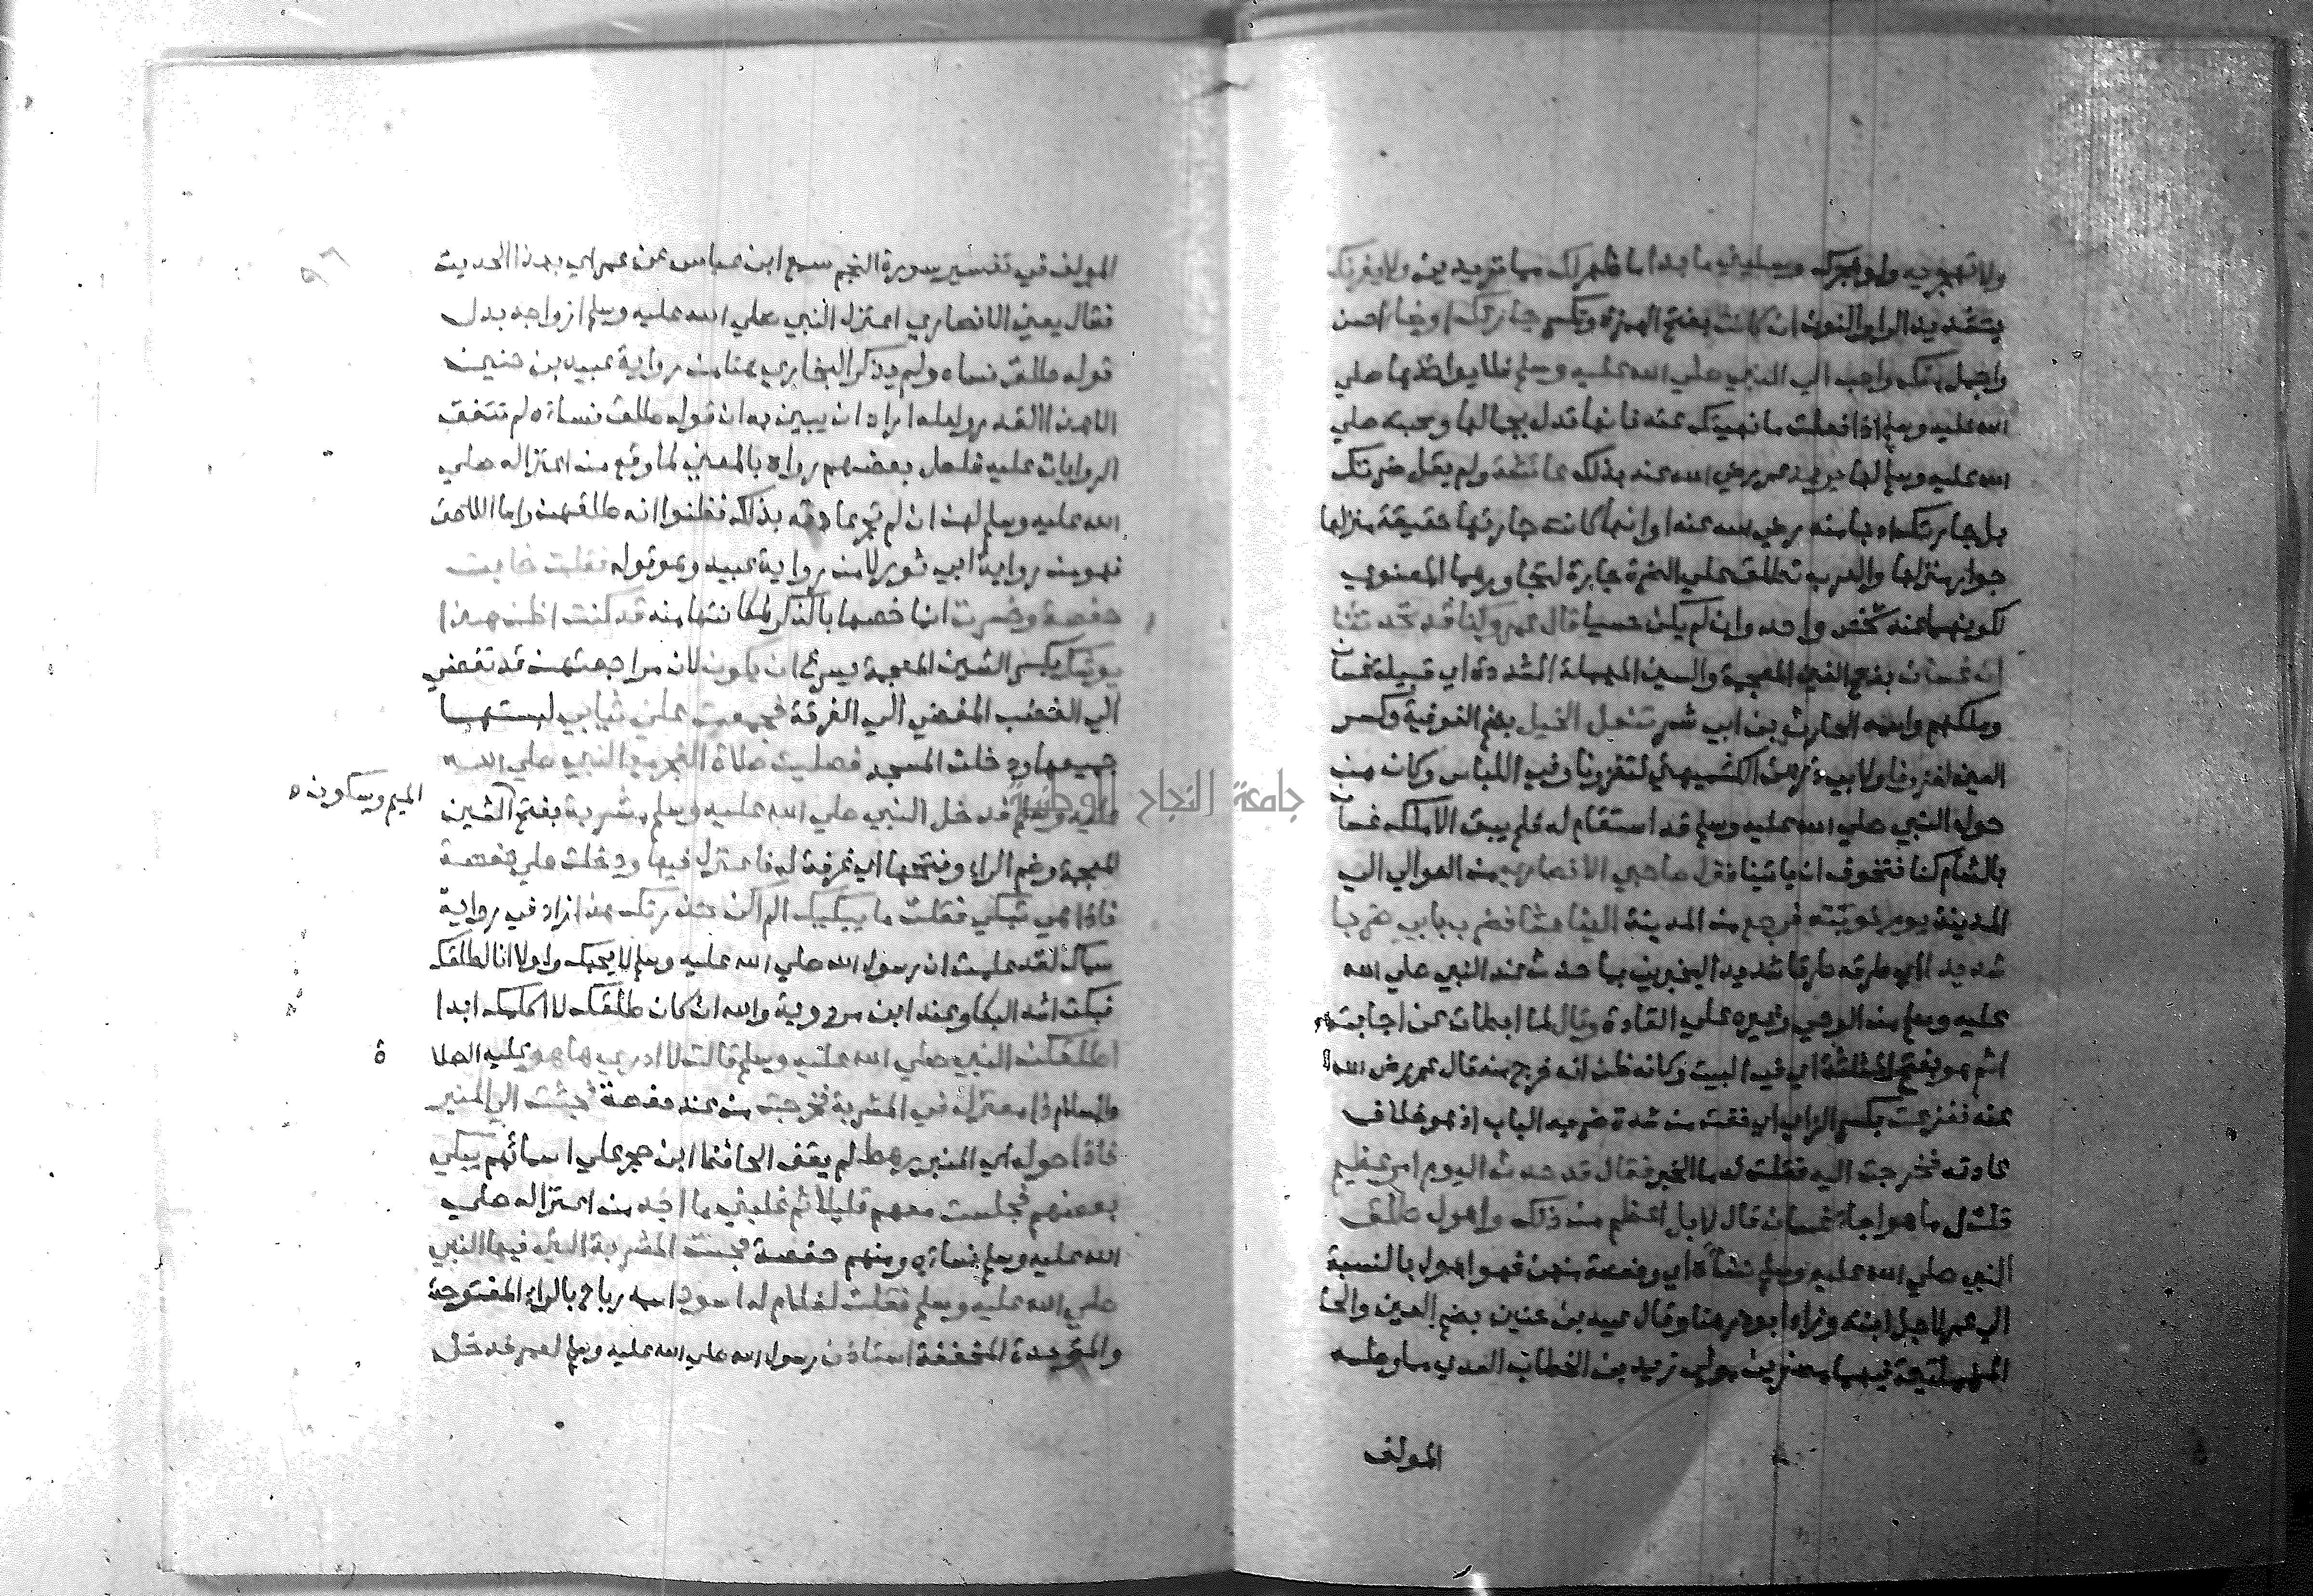 ولا تهجريه ولو هجرك وسليني ما بدا اي ظهر لك مما تريدين ولا يغرنك
بتشديد الراو والنون ان كانت بفتح الهمزة وتكسر جارتك اوضا احسن
واجمل منك واحب الي النبي صلي الله عليه وسلم فلا يواخذها صلي
الله عليه وسلم اذا فعلت ما نهيتك عنه فانها تدل بجمالها ومحبته صلي
الله عليه وسلم لها يريد عمر رضي الله عنه بذلك عائشة ولم يقل ضرتك
بل جارتك ادبا منه رضي الله عنه او انها كانت جارتها حقيقة منزلها
جوار منزلها والعرب تطلق علي الضرة جارة لتجاورهما المعنوي
لكونهما عند شخص واحد وان لم يكن حسيا قال عمر وكنا قد تحدثنا
ان غسان بفتح الغين المعجمة والسين المهملة المشددة اي قبيلة غسان
وملكهم واسمه الحارث بن ابي شمر تنعل الخيل بضم الفوقية وكسر
العين لغزونا ولابي ذر عن الكشميهني لتغزونا وفي اللباس وكان من
حول النبي صلي الله عليه وسلم قد استقام له فلم يبق الا ملك غسان
بالشام كنا نتخوف ان ياتينا فنزل صاحبي الانصاري من العوالي الي
المدينة يوم نوبته فرجع من المدينة الينا عشا فضرب بابي ضربا
شديدا اي طرقه طرقا شديدا ليخبرني بما حدث عند النبي صلي الله
عليه وسلم من الوحي وغيره علي العادة وقال لما ابطات عن اجابته
اثم هو بفتح المثلثة اي في البيت وكانه ظن انه خرج منه قال عمر رضي الله
عنه ففزعت بكسر الزاي اي خفت من شدة ضربه الباب اذ هو خلاف
عادته فخرجت اليه فقلت له ما الخبر فقال قد حدث اليوم امر عظيم
قلت له ما هو اجا غسان قال لا بل اعظم من ذلك واهول طلق
النبي صلي الله عليه وسلم نساه اي وحفصة منهن فهو اهول بالنسبة
الي عمر لاجل ابنته وزاد ابوذر هنا وقال عبيد بن حنين بضم العين والحا
المهملة فيهما مصغرين مولي زيد بن الخطاب العدوي مما وصله
المولف
المولف في تفسير سورة النجم سمع ابن عباس عن عمر اي بهذا الحديث
فقال يعني الانصاري اعتزل النبي صلي الله عليه وسلم ازواجه بدل
قوله طلق نساه ولم يذكر البخاري هنا من رواية عبيد بن حنين
الا هذا القدر ولعله اراد ان يبين به ان قوله طلق نساءه لم تتفق
الروايات عليه فلعل بعضهم رواه بالمعني لما وقع من اعتزاله صلي
الله عليه وسلم لهن ان لم تجر عادته بذلك فظنوا انه طلقهن واما اللاحق
فهو من رواية ابي ثور لا من رواية عبيد وهو قوله فقلت خابت
حفصة وخسرت انما خصها بالذكر لمكانتها منه قد كنت اظن هذا
يوشك بكسر الشين المعجمة يسرع ان يكون لان مراجعتهن قد تفضي
الي الغضب المفضي الي الفرقة فجمعت علي ثيابي لبستهما
جميعها ودخلت المسجد فصليت صلاة الفجر مع النبي صلي الله
عليه وسلم فدخل النبي صلي الله عليه وسلم مشربة بفتح الشين
الميم وسكون ه
المعجمة وضم الراء وفتحها اي غرفة له فاعتزل فيها ودخلت علي حفصة
فاذا هي تبكي فقلت ما يبكيك الم اكن حذرتك هذا زاد في رواية
سماك لقد علمت ان رسول الله صلي الله عليه وسلم لا يحبك ولولا انا لطلقك
فبكت اشد البكا وعند ابن مردوية والله ان كان طلقك لا اكلمك ابدا
اطلقكن النبي صلي الله عليه وسلم قالت لا ادري ها هو عليه الصلا
ة
والسلام ذا معتزل في المشربة فخرجت من عند حفصة فجئت الي المنبر
فاذا حوله اي المنبر رهط لم يقف الحافظ ابن حجر علي اسمائهم يبكي
بعضهم فجلست معهم قليلا ثم غلبني ما اجد من اعتزاله صلي
الله عليه وسلم نساءه ومنهم حفصة فجئت المشربة التي فيها النبي
صلي الله عليه وسلم فقلت لغلام له اسود اسمه رباح بالراء المفتوحة
والموحدة المخففة استاذن رسول الله صلي الله عليه وسلم لعمر فدخل
جامعة النجاح الوطنية